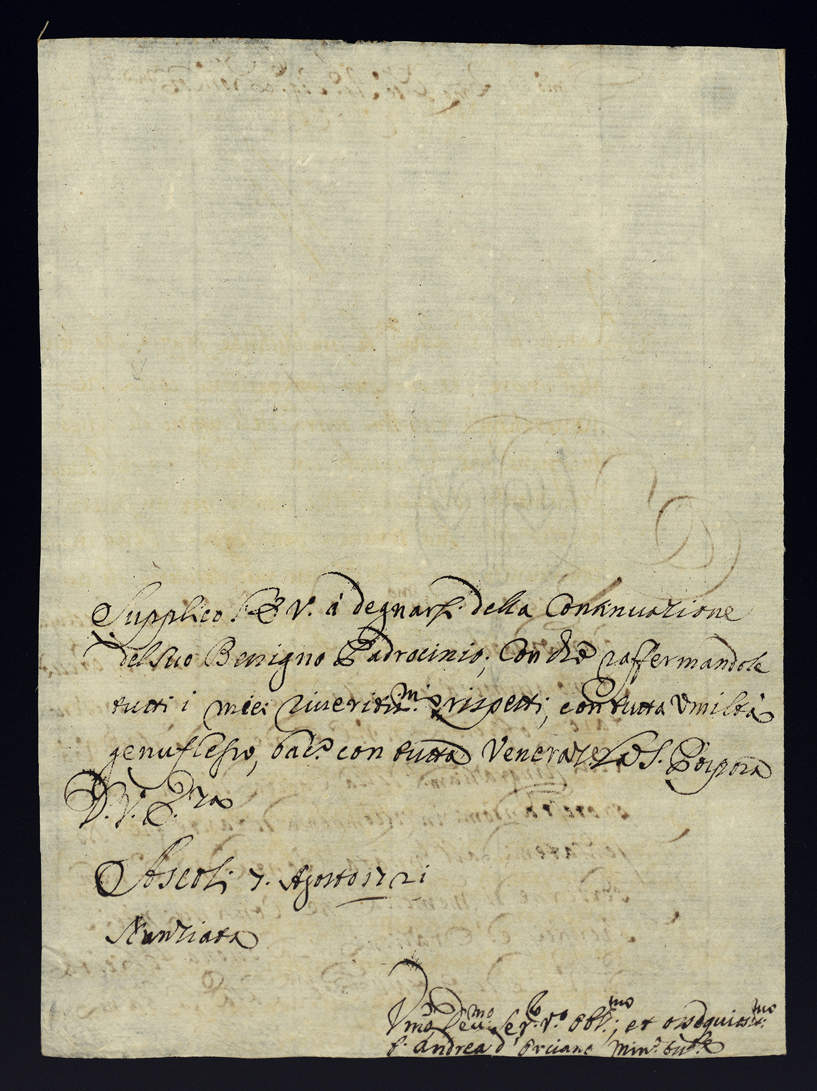 Supplico l'E. V. à degnarsi della Continuazione
del suo Benigno Padrocinio; Con che raffermandole
tutti i miei riveritis.mi rispetti, con tutta umiltà
genuflesso, bacio con tutta Veneraz.e la S. Porpora
D. V. E.za
Ascoli 7. Agosto 1721
Nunziata
Um.o Dev.mo Ser.re V.o Obl.mo, et ossequios.mo
f. Andrea d'Orciano Min.o